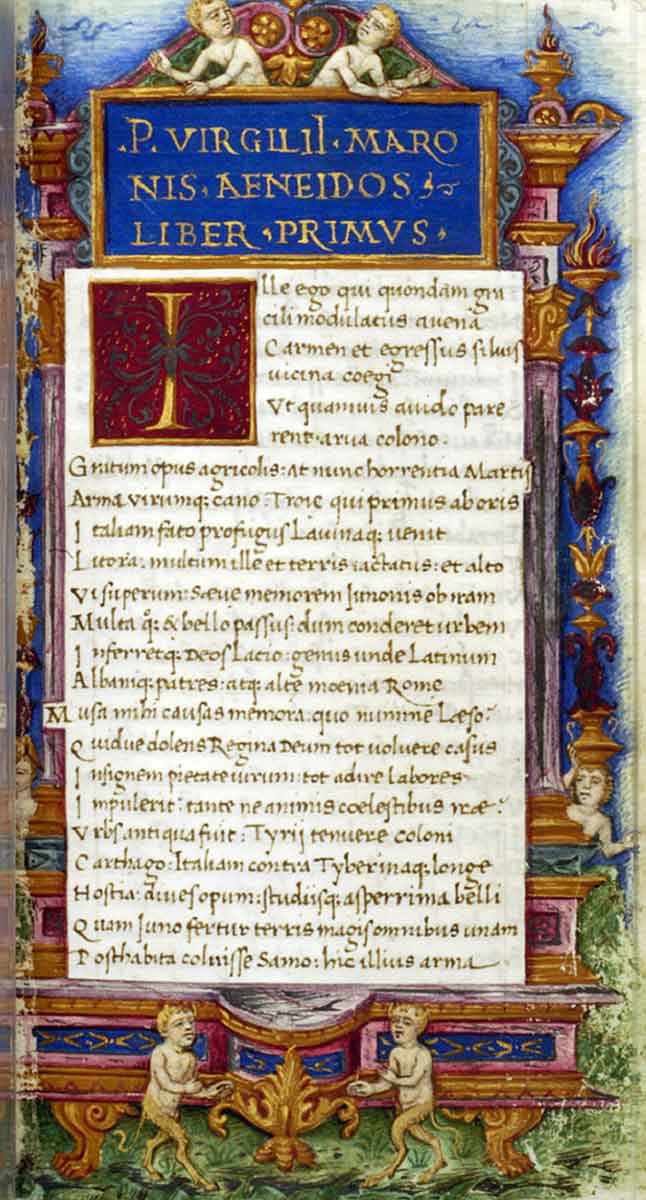 .P. VIRGILII. MARO
NIS. AENEIDOS
LIBER, PRIMVS,
Ille ego qui quondam gra
cili modulatus avena
Carmen et egressus siluis
vicina coegi
Vt quamuis auido pare
rent. arua colono.
Gratum opus agricolis: at nunc horrentia Martis
Arma virumq; cano: Troie qui primus ab oris
Italiam fato profugus Lauinaq; venit
Litora: multum ille et terris iactatus: et alto
Vi superum: Sæue memorem Junonis ob iram
Multa qq; & bello passus: dum conderet urbem
Inferretq; Deos Lacio: genus unde Latinum
Albaniq; patres: atq; alte moenia Rome
Musa mihi causas memora: quo numine Læso?
Quidue dolens Regina Deum tot uoluere casus
Insignem pietate uirum: tot adire Labores
Impulerit: tante ne animis coelestibus iræ?
Vrbs antiqua fuit: Tyrii tenuere coloni
Carthago: Italiam contra Tyberinaq; longe
Hostia: diues opum: studiisq; asperrima belli
Quam Juno fertur terris magis omnibus unam
Posthabita coluisse Samo: hic illius arma